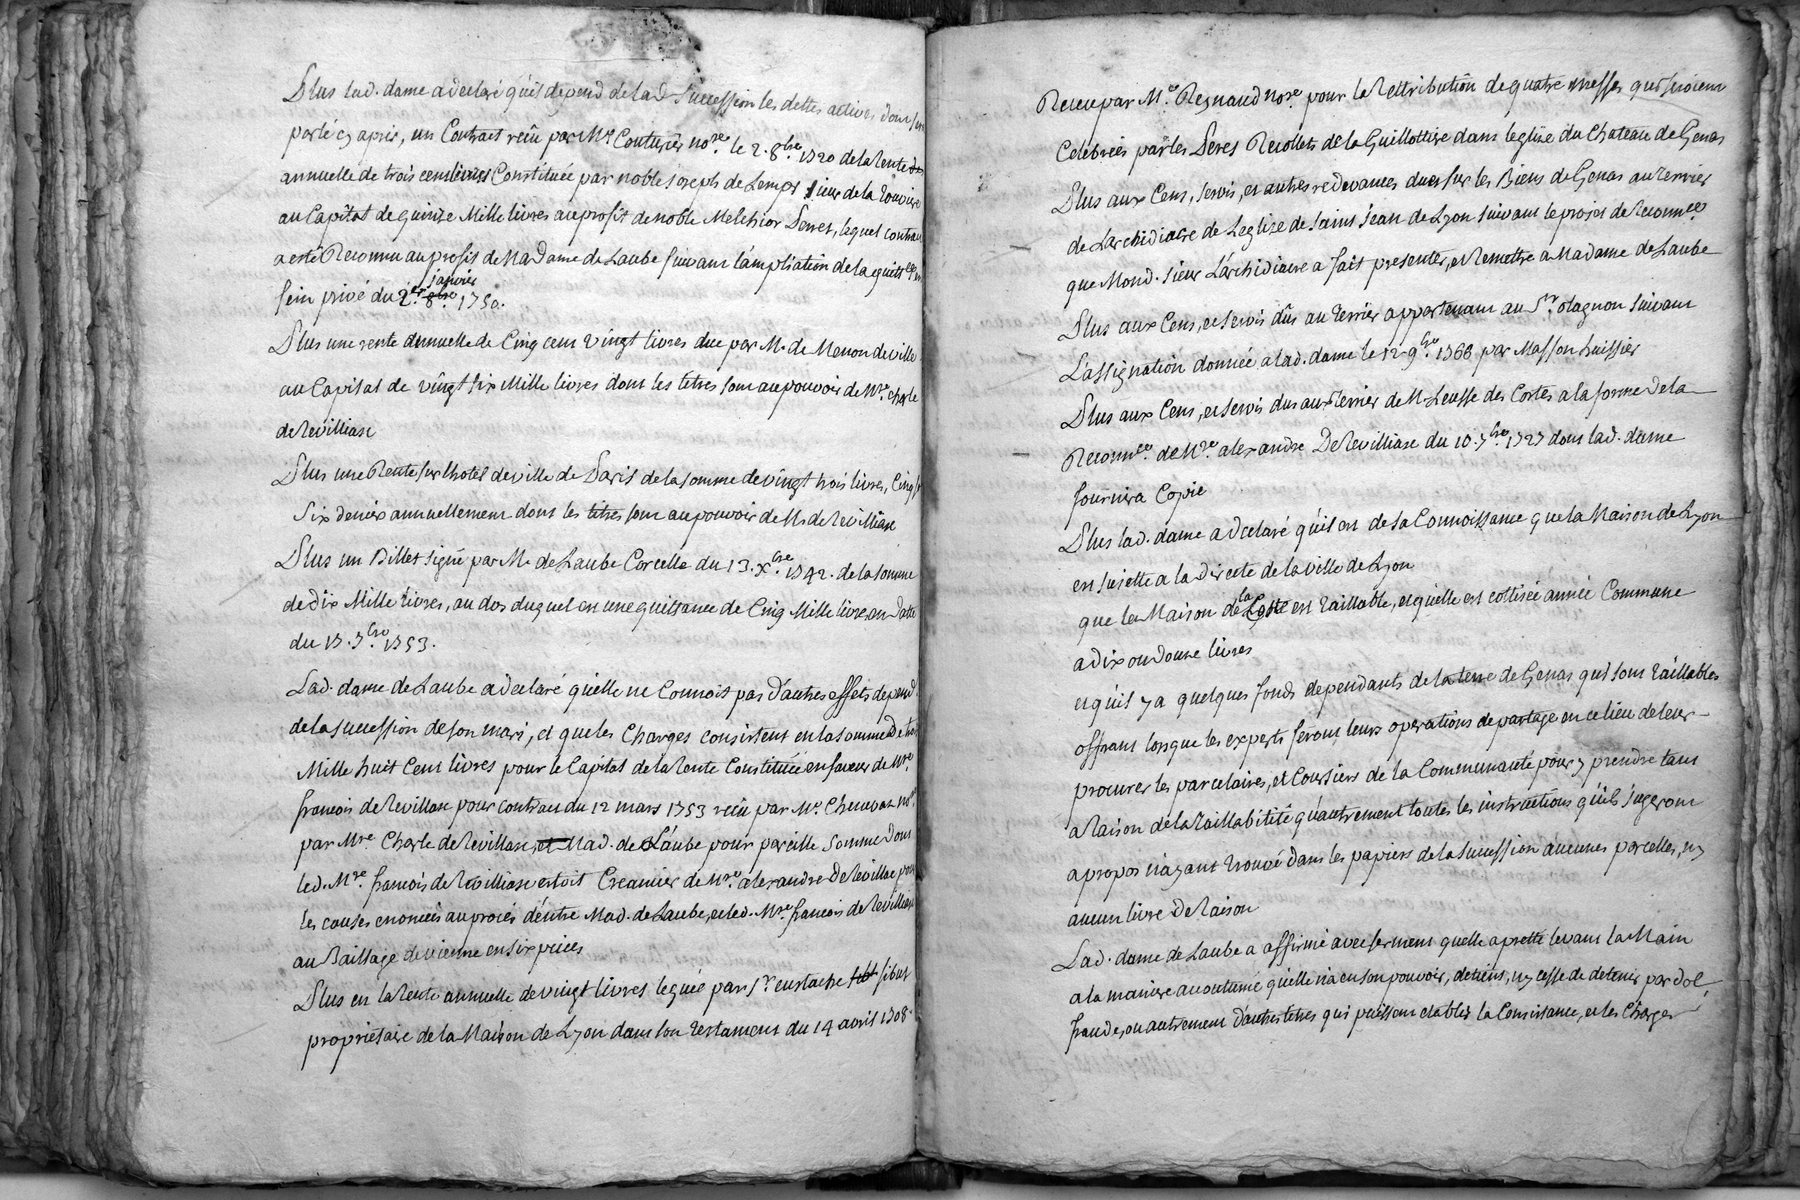 Plus lad. dame a declaré qu'il depend de lad. Succession les dettes actives dont sera
parlé cy apres, un Contract reçu par Me Couturier nore le 2. 8bre 1720 de la rente
annuelle de trois cens livres Constituée par noble Joseph de Lemps Sieur de la
au Capital de quinze Mille livres au profit de noble Melchior Perret, lequel contrat
a esté Reconnu au profit de Madame de Laube suivant l'ampliation de la quittce
sein privé du 2e janvier 8bre 1750.
Plus une rente annuelle de Cinq cent vingt livres due par M. de Menon de ville
au Capital de vingt six Mille livres dont les titres sont au pouvoir de Mre. charle
de Revilliasc
Plus une Rente sur lhotel de ville de Paris de la somme de vingt trois livres, Cinq
Six deniers annuellement dont les titres sont au pouvoir de M. de Revilliasc
Plus un Billet signé par M. de Laube Corcelle du 13. Xbre 1742. de la somme
de dix Mille livres, au dos duquel est une quittance de Cinq Mille livres en datte
du 17. 7bre 1753.
Lad. dame de Laube a declaré qu'elle ne Connoit pas d'autres effets depend.
de la succession de son mari, et que les Charges consistent en la somme de
Mille huit Cent livres pour le Capital de la rente Constituée en faveur de Mre.
francois de Revilliasc pour contrat du 12 mars 1753 reçu par Me. Chenavas nore
par Mre. Charle de Revilliasc, et Mad. de Laube pour pareille Somme dont
led. Mre. francois de Revilliasc estoit Creancier de Mre. alexandre De Revilliasc pour
les causes enoncées au procès d'entre Mad. de Laube, et led. Mre francois de Revilliasc
au Bailliage de vienne en six pieces
Plus en la rente annuelle de vingt livres leguée par Sr. eustache sibut
proprietaire de la Maison de Lyon dans son testament du 14 avril 1708.
Receu par Me. Regnaud nore. pour la Rettribution de quatre messes qui seroient
Celebrées par les Peres Recollets de la Guillottiere dans l'eglise du Chateau de Genas
Plus aux Cens, servis, et autres redevances dues sur les Biens de Genas au terrier
de L'archidiacre de L'eglize de Saint Jean de Lyon suivant le projet de reconnce
que Mond. sieur L'archidiacre a fait presenter, et Remettre a Madame de Laube
Plus aux Cens, et servis dûs au terrier appartenant au Sr. olagnon suivant
L'assignation donnée a lad. dame le 12 9bre 1768 par Masson huissier
Plus aux Cens, et servis dus au Terrier de M. Leusse des Cortes a la forme de la
Reconnce. de Mre. alexandre De Revilliasc du 10. 7bre 1727 dont lad. dame
fournira Copie
Plus lad. dame a declaré qu'il est de sa Connoissance que la Maison de Lyon
est sujette a la directe de la ville de Lyon
que la Maison de la Coste est taillable, et qu'elle est cottisée année Commune
a dix ou douze livres
et qu'il y a quelques fonds dependants de la terre de Genas qui sont taillables
offrant lorsque les experts feront leurs operations de partage en ce lieu de leur
procurer les parcelaires, et Coursiers de la Communauté pour y prendre tant
a raison de la taillabilité qu'autrement toutes les instructions qu'ils jugeront
a propos n'ayant trouvé dans les papiers de la succession aucunes parcelles, ny
aucun livre de raison
Lad. dame de Laube a affirmé avec serment quelle a presté levant la Main
a la maniere accoutumé qu'elle n'a en son pouvoir, detient, ny cesse de detenir par dol,
fraude, ou autrement d'autres titres qui puissent etablir la Consistance, et les Charges